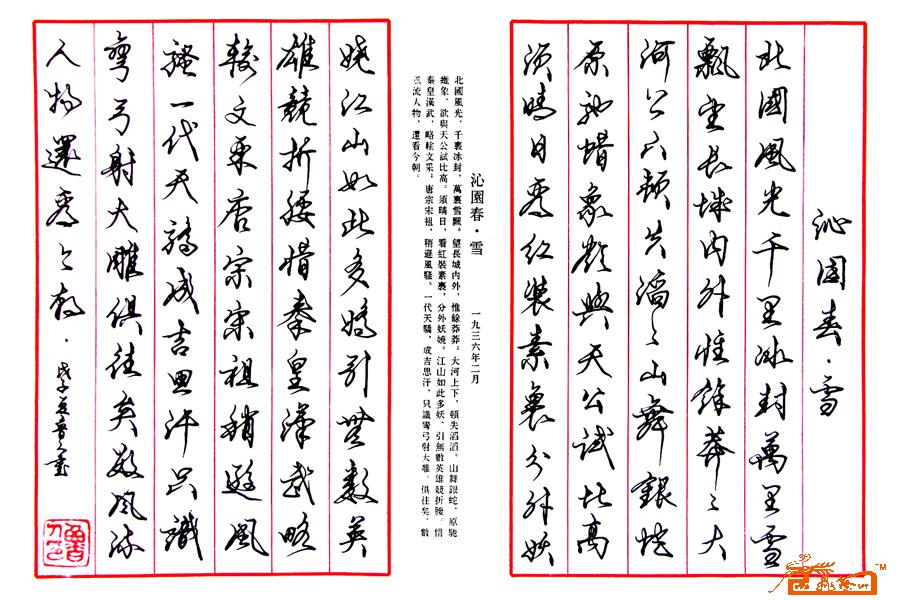 沁園春·雪
北國風光千里冰封萬里雪
飄望長城內外惟餘莽〻大
河上下頓失滔〻山舞銀蛇
原馳蜡象欲與天公試比高
須晴日看紅裝素裹分外妖
沁園春·雪 一九三六年二月
北國風光，千裏冰封，萬裏雪飄。望長城內外，惟餘莽莽；大河上下，頓失滔滔。山舞銀蛇，原馳
蠟象，欲與天公試比高。須晴日，看紅裝素裹，分外妖嬈。江山如此多妖，引無數英雄競折腰。惜
秦皇漢武，略輸文采；唐宗宋祖，稍遜風騷。一代天驕，成吉思汗，只識彎弓射大雕。俱往矣，數
風流人物，還看今朝。
嬈江山如此多嬌引無數英
雄競折腰惜秦皇漢武略
輸文采唐宗宋祖稍遜風
騷一代天驕成吉思汗只識
彎弓射大雕俱往矣數風流
人物還看今朝·戊子夏